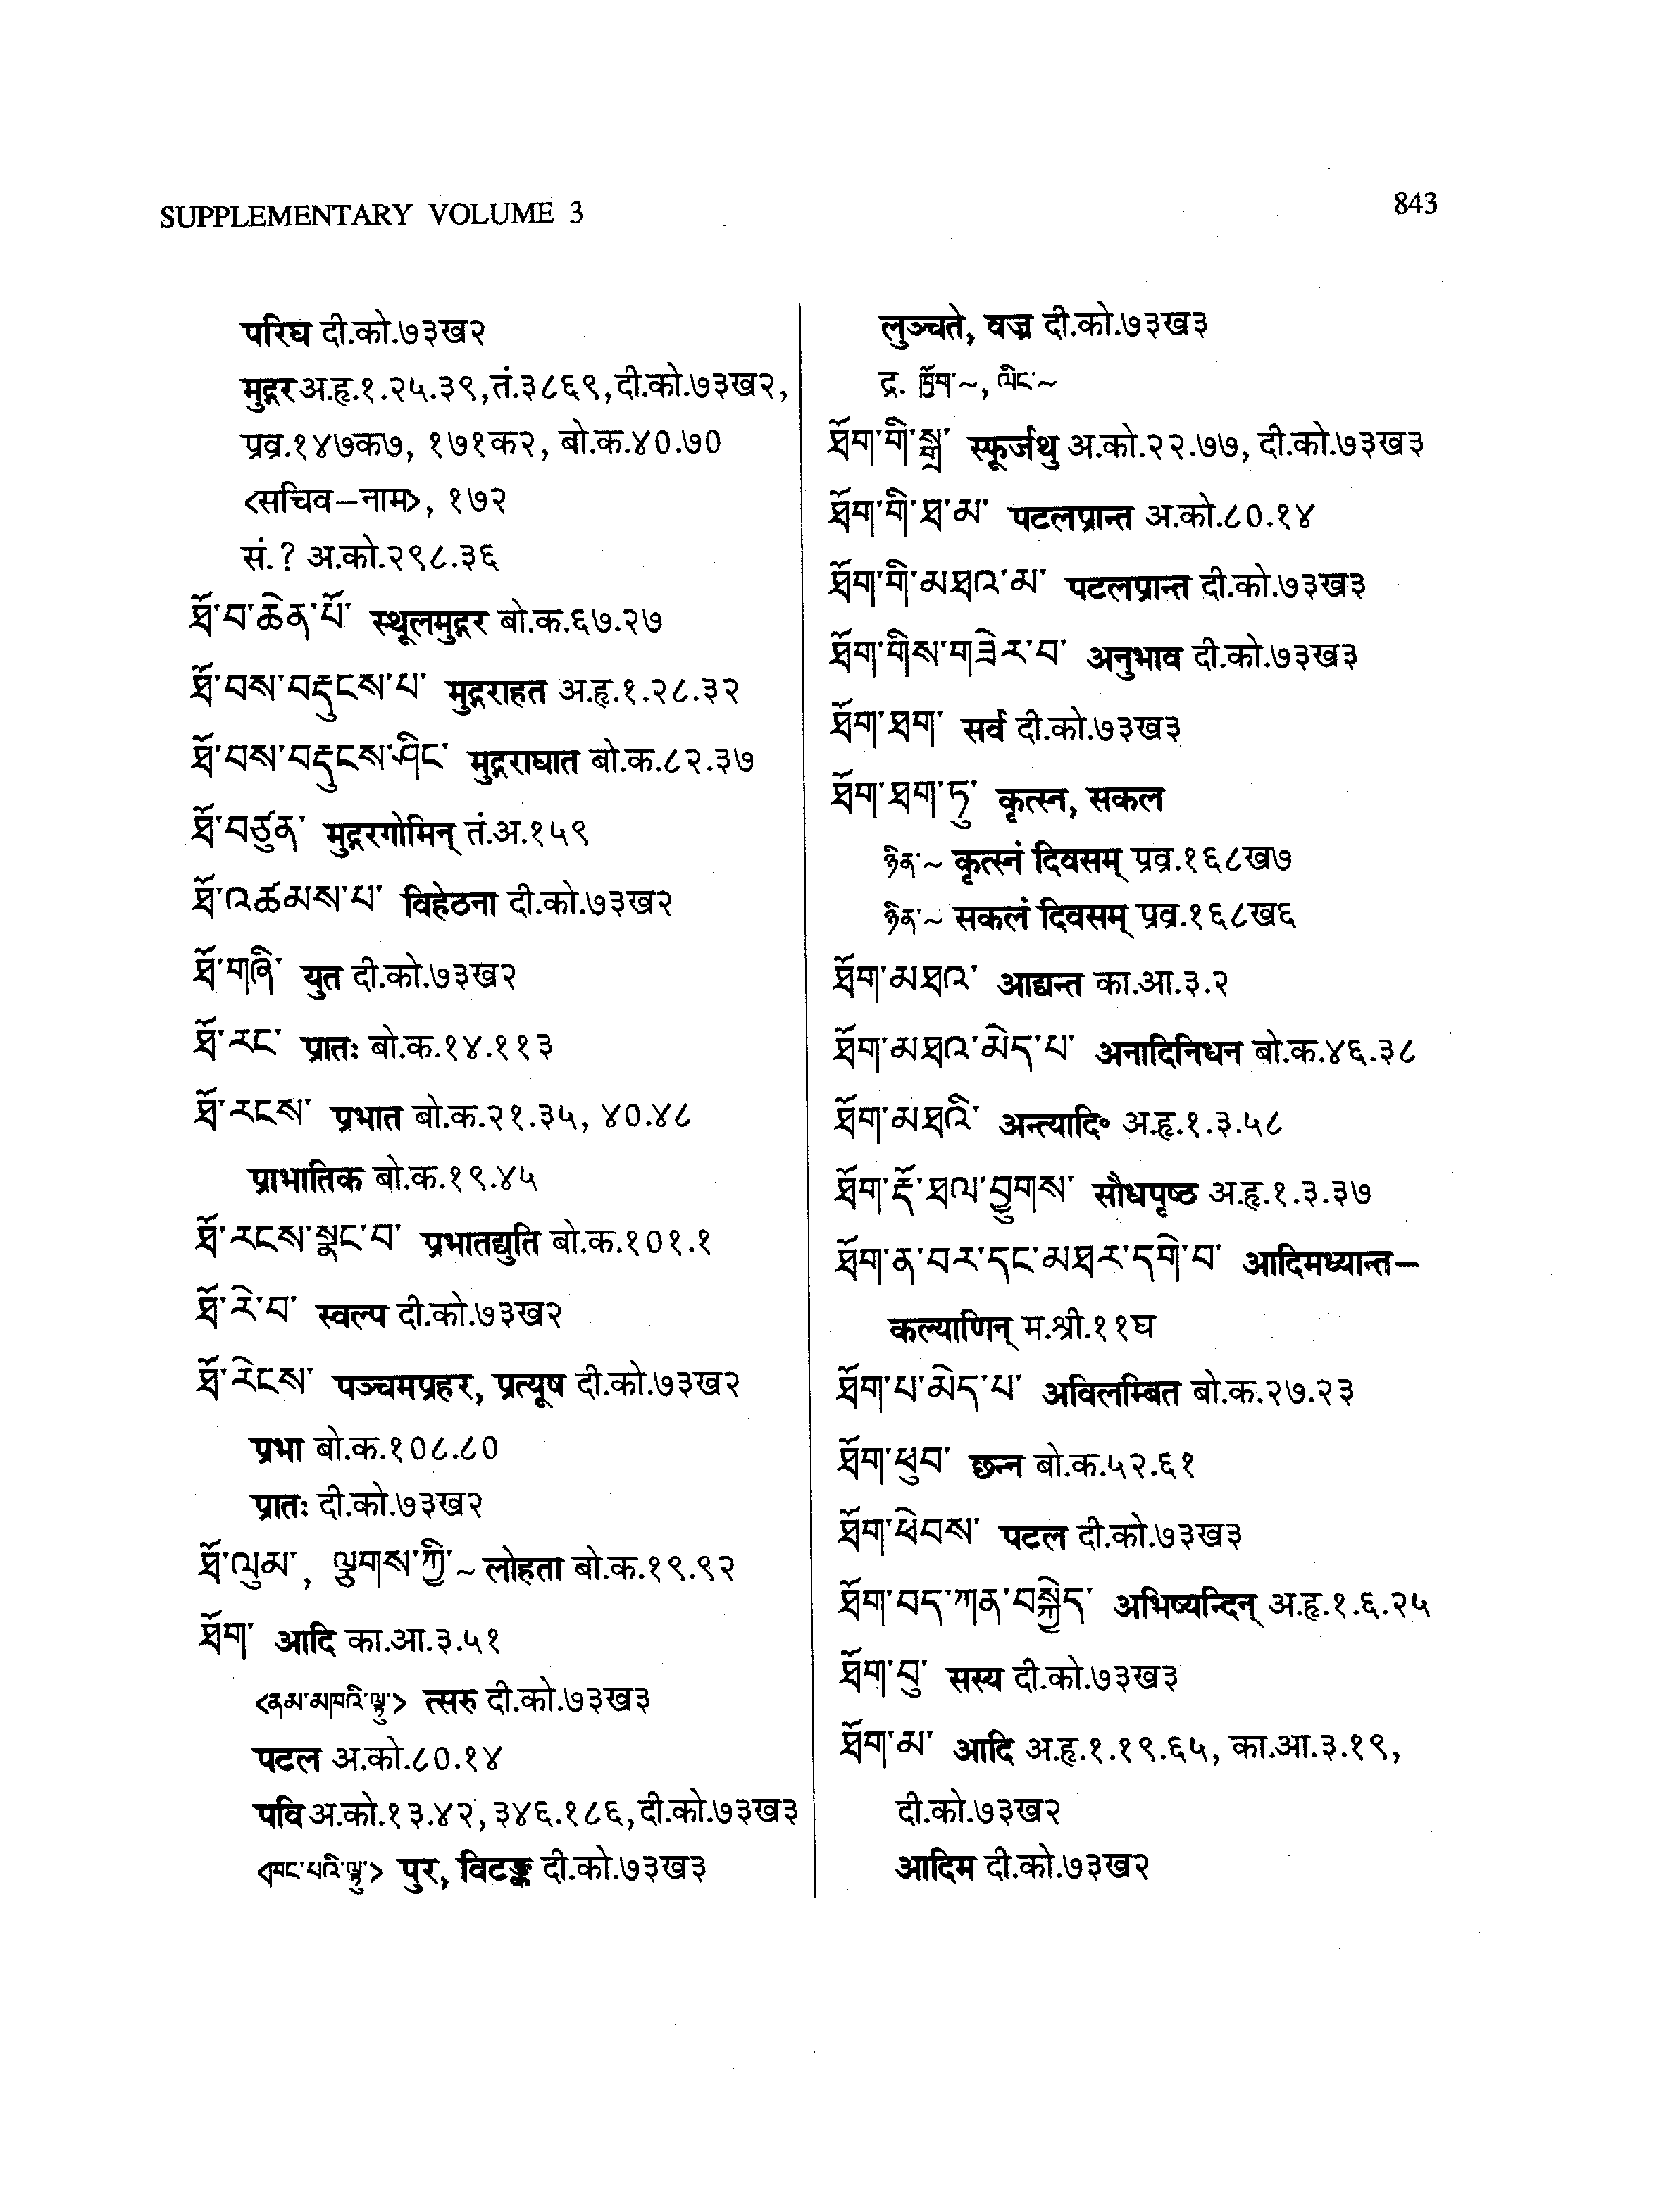 SUPPLEMENTARY VOLUME 3
843
परिघ दी.को.७३ख२
मुद्गर अ.हृ.१.२५.३९, तं.३८६९, दी.को.७३ख२,
प्रव्र.१४७क७, १७१क२, बो.क.४०.७०
<सचिव–नाम>, १७२
सं.? अ.को.२९८.३६
ཐོ་བ་ཆེན་པོ་ स्थूलमुद्गर बो.क.६७.२७
ཐོ་བས་བརྡུངས་པ་ मुद्गराहत अ.हृ.१.२८.३२
ཐོ་བས་བརྡུངས་ཤིང་ मुद्गराघात बो.क.८२.३७
ཐོ་བཙུན་ मुद्गरगोमिन् तं.अ.१५९
ཐོ་འཚམས་པ་ विहेठना दी.को.७३ख२
ཐོ་གཞི་ युत दी.को.७३ख२
ཐོ་རང་ प्रातः बो.क.१४.११३
ཐོ་རངས་ प्रभात बो.क.२१.३५, ४०.४८
प्राभातिक बो.क.१९.४५
ཐོ་རངས་སྣང་བ་ प्रभातद्युति बो.क.१०१.१
ཐོ་རེ་བ་ स्वल्प दी.को.७३ख२
ཐོ་རེངས་ पञ्चमप्रहर, प्रत्यूष दी.को.७३ख२
प्रभा बो.क.१०८.८०
प्रातः दी.को.७३ख२
ཐོ་ལུམ་, ལྕགས་ཀྱི་~ लोहता बो.क.१९.९२
ཐོག་ आदि का.आ.३.५१
<ནམ་མཁའི་ལྟུ་> त्सरु दी.को.७३ख३
पटल अ.को.८०.१४
पवि अ.को.१३.४२, ३४६.१८६, दी.को.७३ख३
<ཁང་པའི་ལྟུ་> पुर, विटङ्क दी.को.७३ख३
लुञ्चते, वज्र दी.को.७३ख३
द्र. ཁྲོག་~, ལིང་~
ཐོག་གི་སྒྲ་ स्फूर्जथु अ.को.२२.७७, दी.को.७३ख३
ཐོག་གི་ཐ་མ་ पटलप्रान्त अ.को.८०.१४
ཐོག་གི་མཐའ་མ་ पटलप्रान्त दी.को.७३ख३
ཐོག་གིས་གཟེར་བ་ अनुभाव दी.को.७३ख३
ཐོག་ཐག་ सर्व दी.को.७३ख३
ཐོག་ཐག་ཏུ་ कृत्स्न, सकल
ཉིན་~ कृत्स्नं दिवसम् प्रव्र.१६८ख७
ཉིན་~ सकलं दिवसम् प्रव्र.१६८ख६
ཐོག་མཐའ་ आद्यन्त का.आ.३.२
ཐོག་མཐའ་མེད་པ་ अनादिनिधन बो.क.४६.३८
ཐོག་མཐའི་ अन्त्यादि॰ अ.हृ.१.३.५८
ཐོག་རྡོ་ཐལ་བྱུགས་ सौधपृष्ठ अ.हृ.१.३.३७
ཐོག་ན་བར་དང་མཐར་དགེ་བ་ आदिमध्यान्त–
कल्याणिन् म.श्री.११घ
ཐོག་པ་མེད་པ་ अविलम्बित बो.क.२७.२३
ཐོག་ཕུབ་ छन्न बो.क.५२.६१
ཐོག་ཕེབས་ पटल दी.को.७३ख३
ཐོག་བད་ཀན་བསྐྱེད་ अभिष्यन्दिन् अ.हृ.१.६.२५
ཐོག་བུ་ सस्य दी.को.७३ख३
ཐོག་མ་ आदि अ.हृ.१.१९.६५, का.आ.३.१९,
दी.को.७३ख२
आदिम दी.को.७३ख२